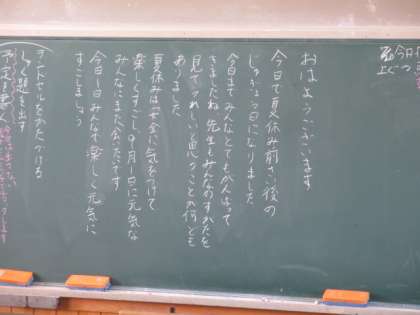 おはようございます
今日で夏休み前さい後の
じゅぎょう日になりました
今日までみんなとてもがんばって
きましたね 先生もみんなのすがたを
見てうれしい思うことが何ども
ありました
夏休みは安全に気をつけて
楽しくすごし、9月1日に元気な
みんなにまた会いたいです
今日一日みんなで楽しく元気に
すごしましょう
ランドセルをかたづける
しゅく題を出す
予定を書く